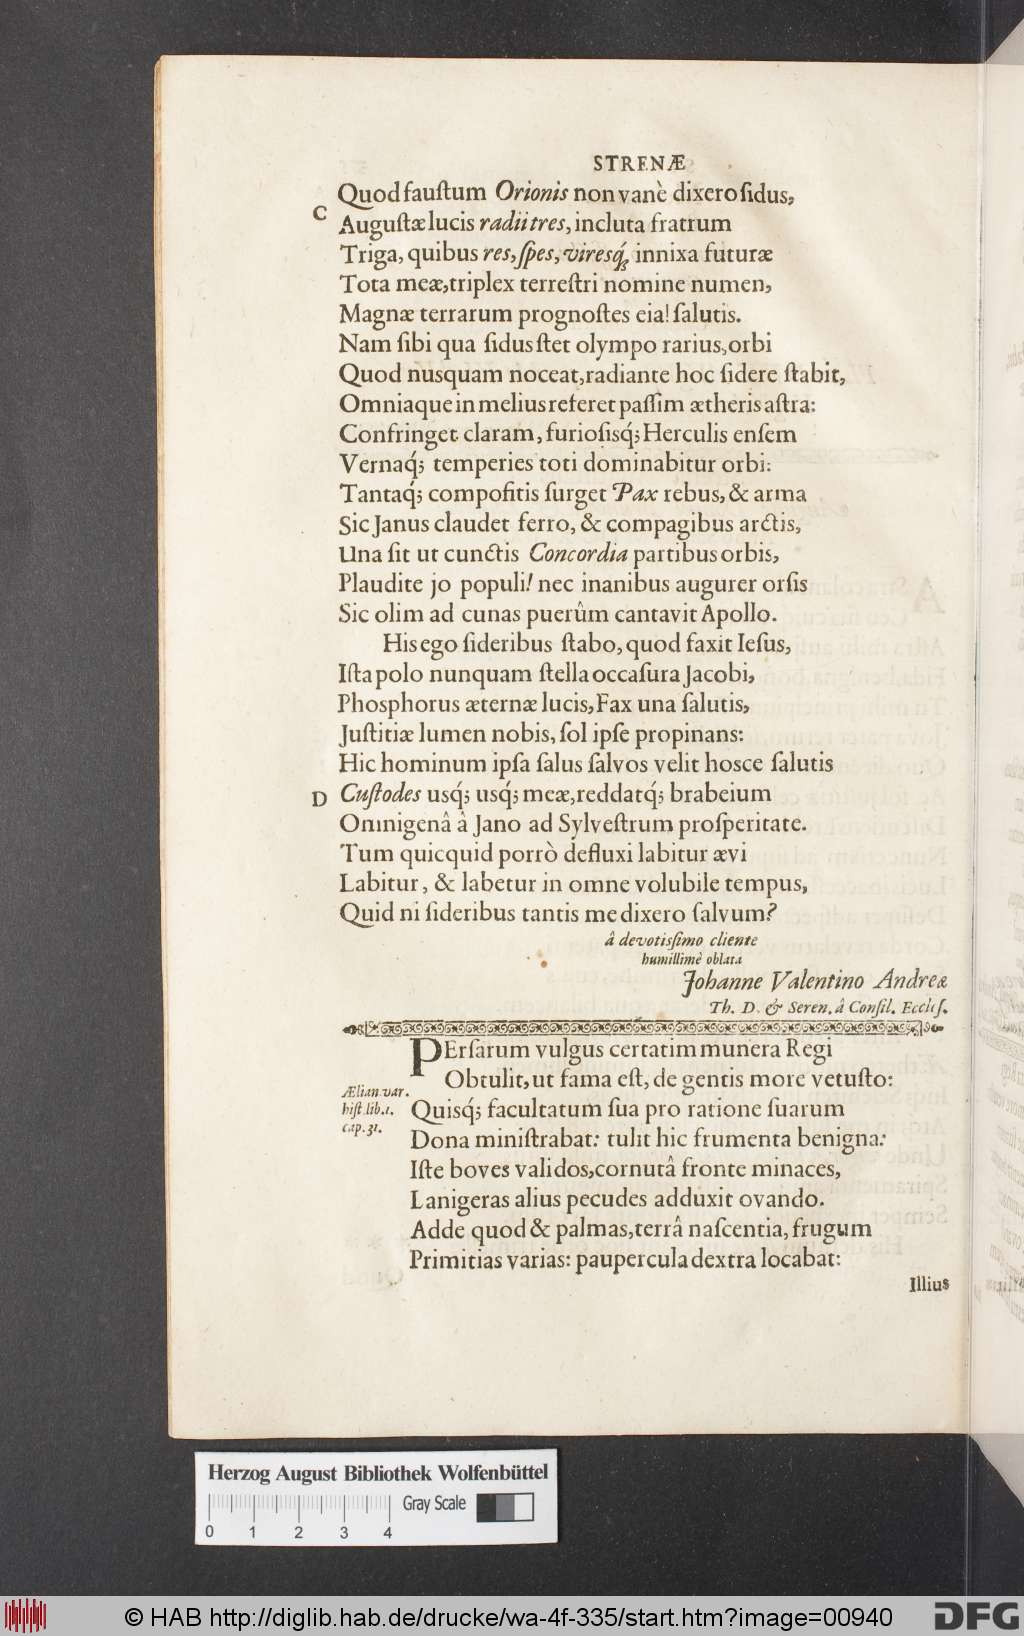 STRENÆ
Quod faustum Orionis non vanè dixero sidus,
C
Augustæ lucis radii tres, incluta fratrum
Triga, quibus res, spes, viresq́; innixa futuræ
Tota meæ, triplex terrestri nomine numen,
Magnæ terrarum prognostes eia! salutis.
Nam sibi qua sidus stet olympo rarius, orbi
Quod nusquam noceat, radiante hoc sidere stabit,
Omniaque in melius referet passim ætheris astra:
Confringet claram, furiosisq́; Herculis ensem
Vernaq́; temperies toti dominabitur orbi:
Tantaq́; compositis surget Pax rebus, & arma
Sic Janus claudet ferro, & compagibus arctis,
Una sit ut cunctis Concordia partibus orbis,
Plaudite jo populi! nec inanibus augurer orsis
Sic olim ad cunas puerûm cantavit Apollo.
His ego sideribus stabo, quod faxit Iesus,
Ista polo nunquam stella occasura Jacobi,
Phosphorus æternæ lucis, Fax una salutis,
Justitiæ lumen nobis, sol ipse propinans:
Hic hominum ipsa salus salvos velit hosce salutis
D Custodes usq́; usq́; meæ, reddatq́; brabeium
Omnigenâ â Jano ad Sylvestrum prosperitate.
Tum quicquid porrò defluxi labitur ævi
Labitur, & labetur in omne volubile tempus,
Quid ni sideribus tantis me dixero salvum?
â devotissimo cliente
humillimè oblata
Johanne Valentino Andreæ
Th. D. & Seren. â Consil. Eccles.
PErsarum vulgus certatim munera Regi
Obtulit, ut fama est, de gentis more vetusto:
Ælian var.
hist. lib. 1.
cap. 31.
Quisq́; facultatum sua pro ratione suarum
Dona ministrabat: tulit hic frumenta benigna:
Iste boves validos, cornutâ fronte minaces,
Lanigeras alius pecudes adduxit ovando.
Adde quod & palmas, terrâ nascentia, frugum
Primitias varias: paupercula dextra locabat:
Illius
Herzog August Bibliothek Wolfenbüttel
Gray Scale
0 1 2 3 4
© HAB http://diglib.hab.de/drucke/wa-4f-335/start.htm?image=00940
DFG